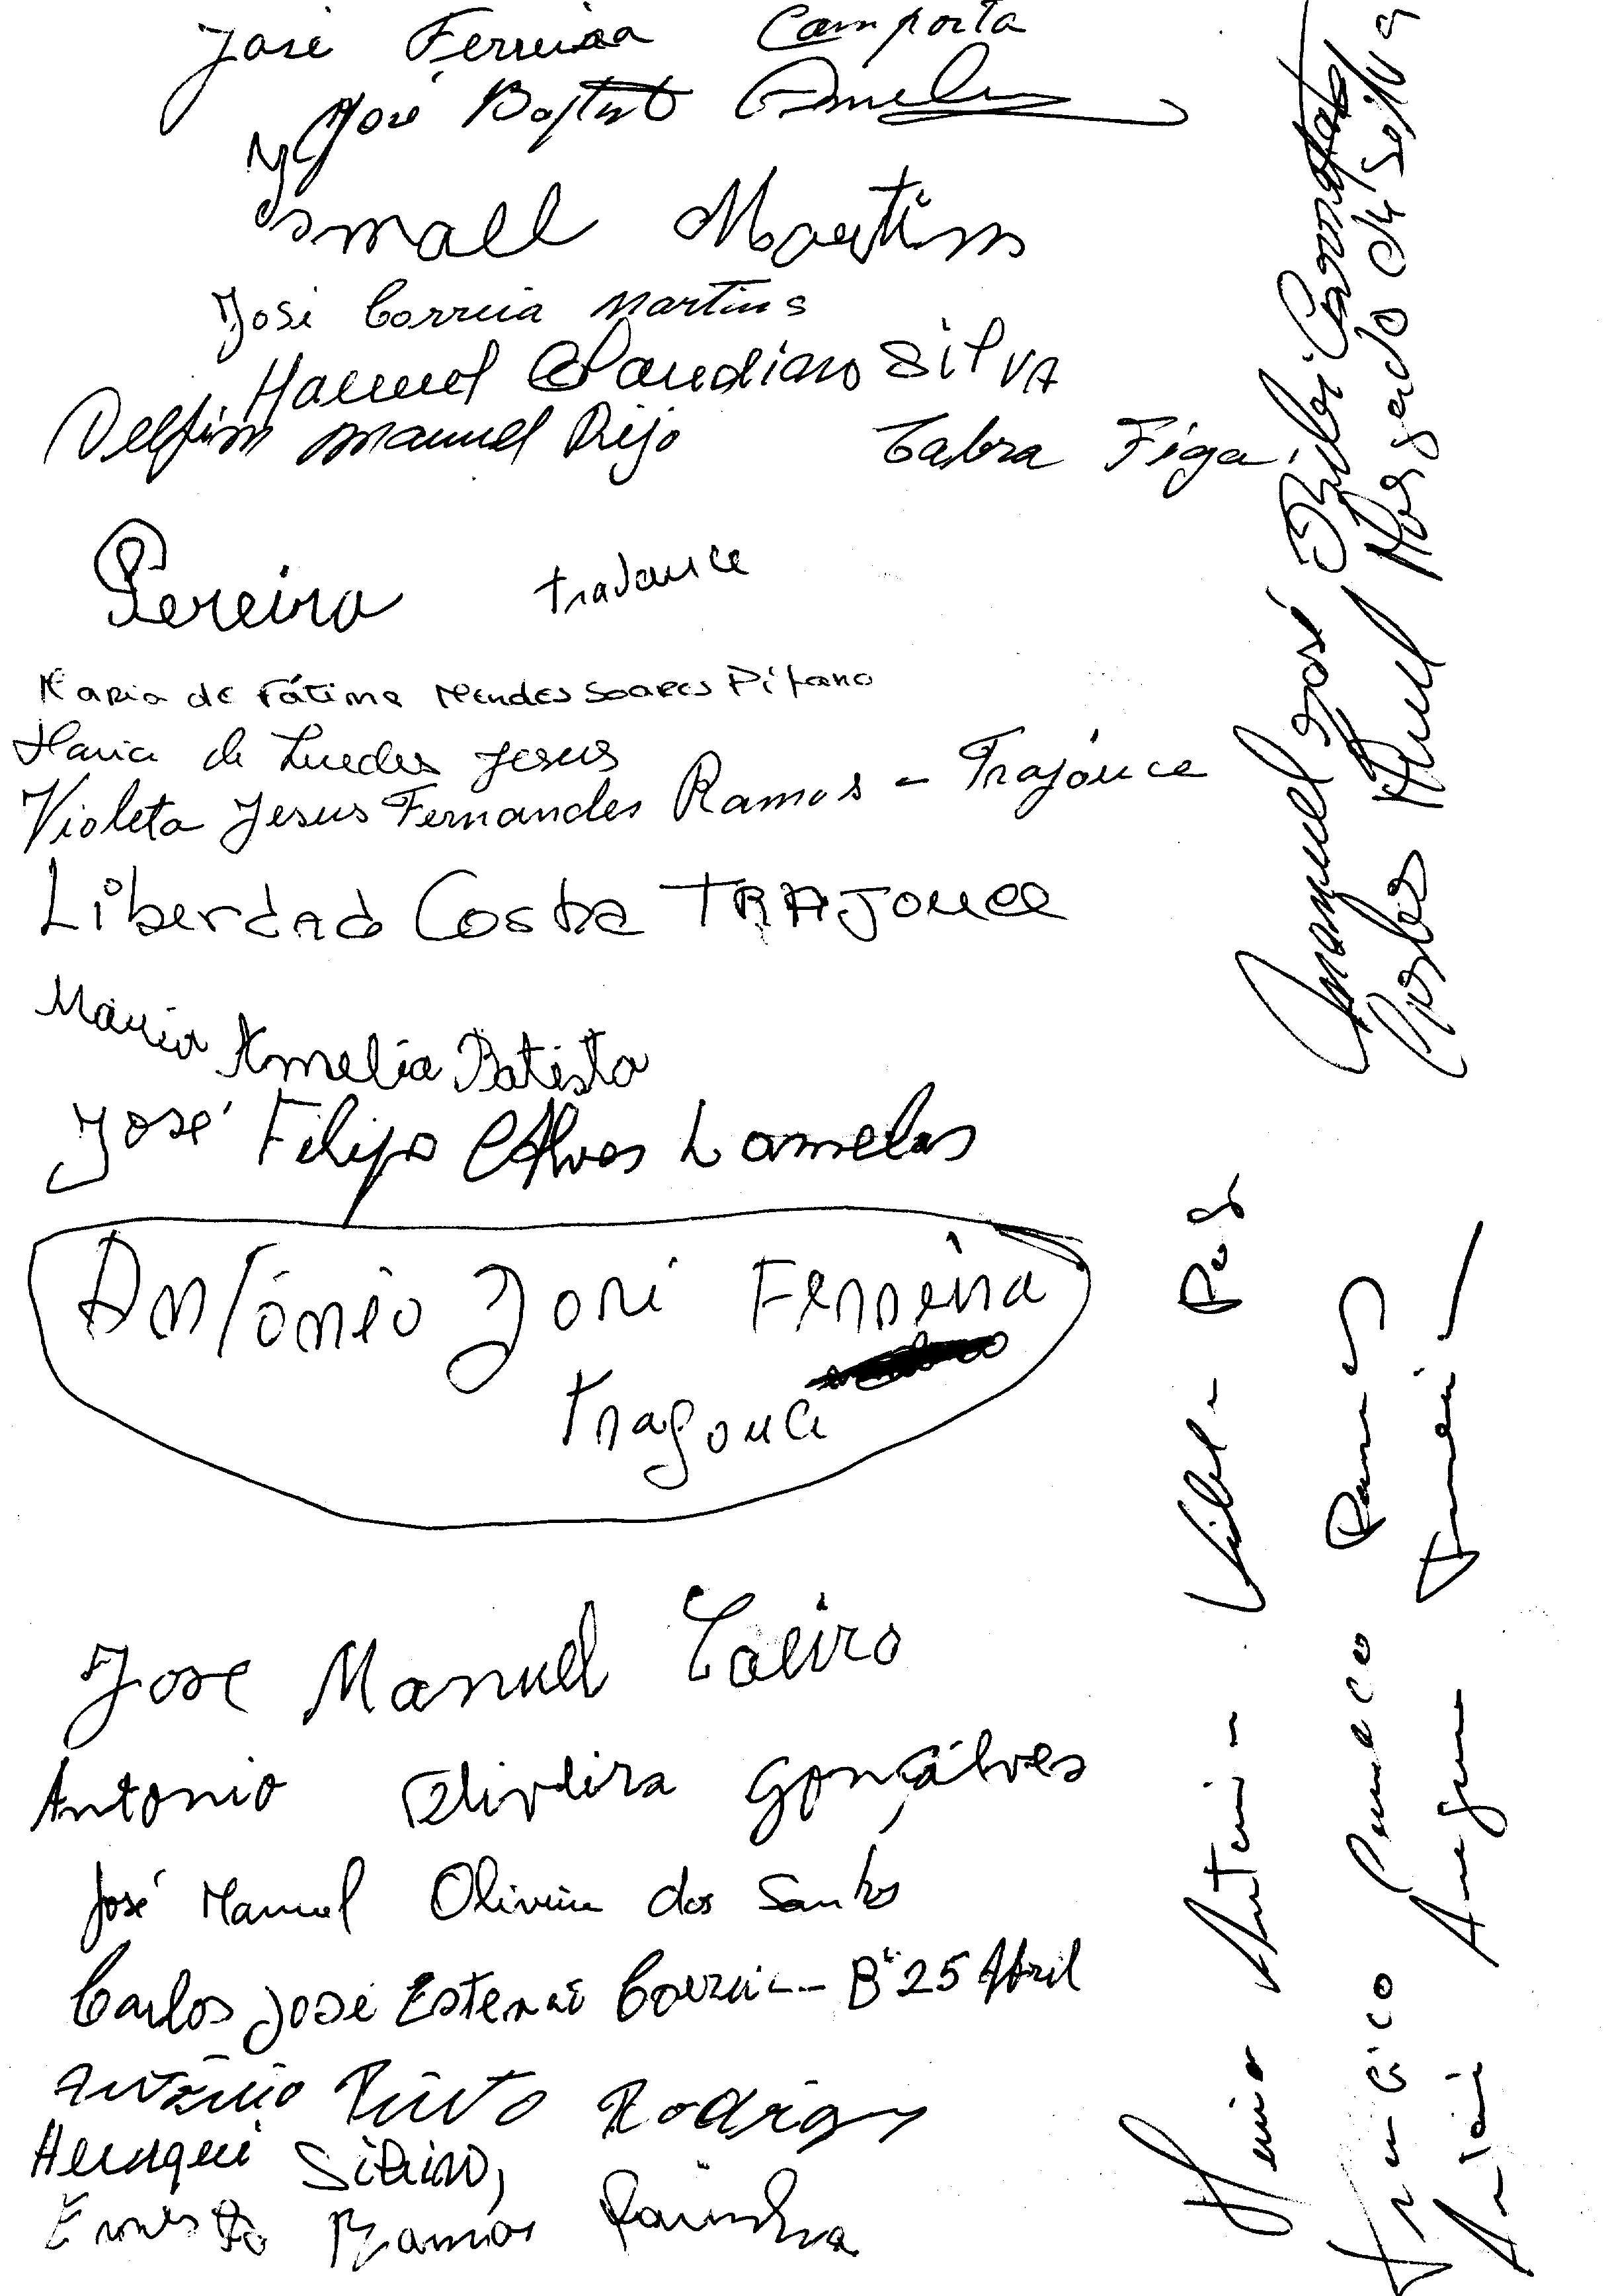 José Ferreira Camporta
José Baptista
Ismael Martins
José Correia Martins
Manuel Claudiano SilVA
Delfim Manuel Rijo Cabra Figa
Pereira Trajouce
Maria de Fátima Mendes Soares Pifano
Maria de Lurdes Jesus
Violeta Jesus Fernandes Ramos - Trajouce
Liberdade Costa TRAJouce
Maria Amelia Batista
José Filipe Alves Lamelas
António José Ferreira
Tragouce
Jose Manuel
Antonio Oliveira Gonçálves
José Manuel Oliveira dos Santos
Carlos José Correia - Bº 25 Abril
António Pinto Rodrigues
Henrique
Ernesto Ramos Rainha
Manuel José
Carlos Manuel Morgado da Silva
António
Francisco Ramos